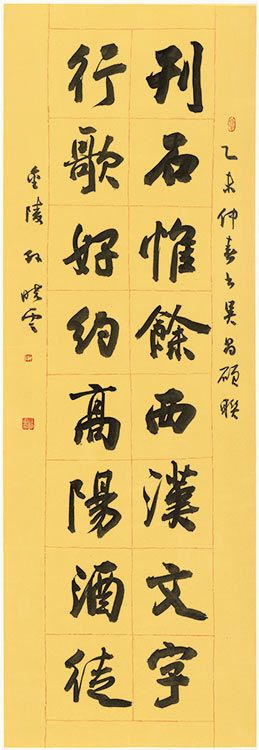 乙未仲春书吴昌硕联
刊石惟餘西漢文字
行歌好約高陽酒徒
金陵孙晓云